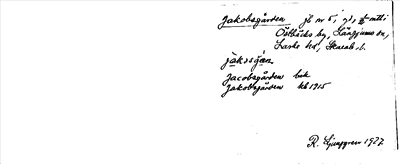 Jakobsgården jb nr 5, i
Östbäcks by, Långjums sn,
Laske hd, Skarab. l.
jàkɔsgån
Jacobsgården bok
Jakobsgården kb 1915
R. Ljunggren 1927